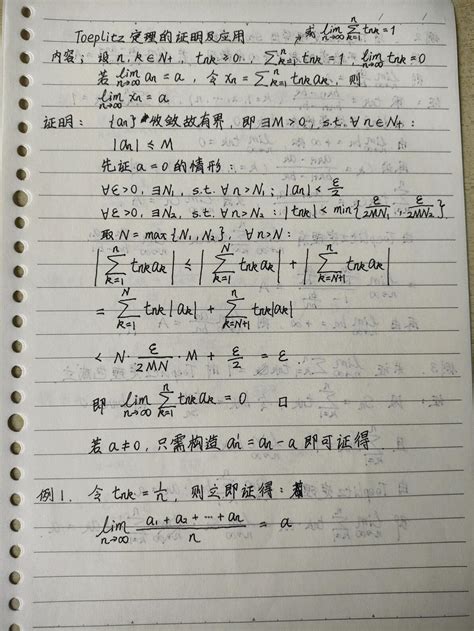 Toeplitz 定理的证明及应用 , 或 lim_{n→∞} Σ_{k=1}^{n} tnk = 1
内容: 设 n, k ∈ N+, tnk ≥ 0, Σ_{k=1}^{n} tnk = 1, lim_{n→∞} tnk = 0
若 lim_{n→∞} an = a, 令 xn = Σ_{k=1}^{n} tnk ak, 则
lim_{n→∞} xn = a
证明: {an} 收敛故有界, 即 ∃M > 0, s.t. ∀n ∈ N+:
|an| ≤ M
先证 a = 0 的情形:
∀ε>0, ∃N1, s.t. ∀n>N1: |an| < ε/2
∀ε>0, ∃N2, s.t. ∀n>N2: |tnk| < min{ε/2MN1, ε/2MN2}
取 N = max{N1, N2}, ∀n>N:
|Σ_{k=1}^{n} tnk ak| ≤ |Σ_{k=1}^{N} tnk ak| + |Σ_{k=N+1}^{n} tnk ak|
= Σ_{k=1}^{N} tnk |ak| + Σ_{k=N+1}^{n} tnk |ak|
< N · ε/2MN · M + ε/2 = ε
即 lim_{n→∞} Σ_{k=1}^{n} tnk ak = 0 □
若 a ≠ 0, 只需构造 an' = an - a 即可证得
例1. 令 tnk = 1/n, 则立即证得:
lim_{n→∞} (a1 + a2 + ··· + an)/n = a